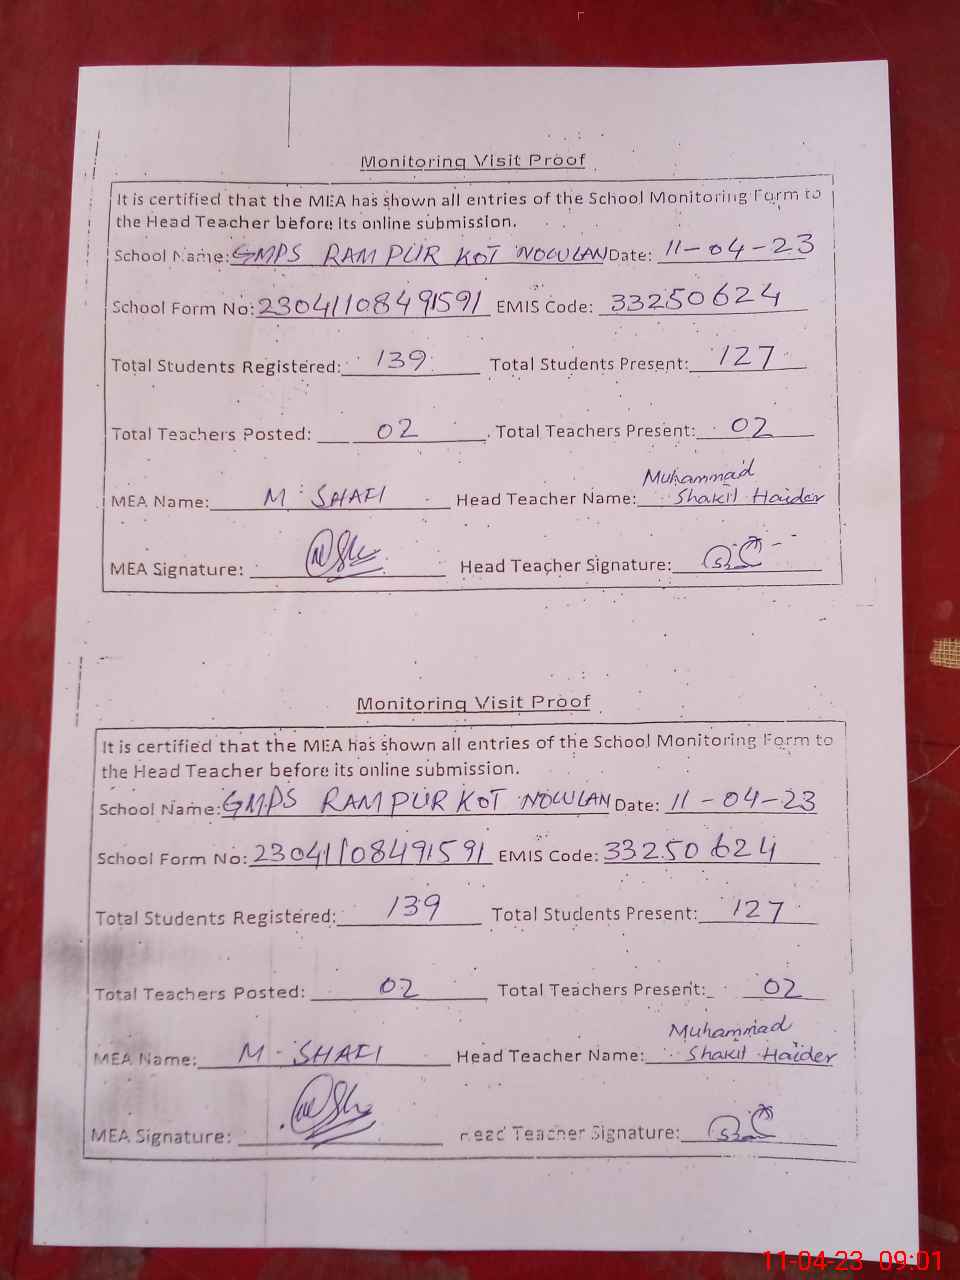 Monitoring Visit Proof
It is certified that the MEA has shown all entries of the School Monitoring Form to
the Head Teacher before its online submission.
School Name: GMPS RAMPUR KOT NOWLAN Date: 11-04-23
School Form No: 23041108491591 EMIS Code: 33250624
Total Students Registered: 139 Total Students Present: 127
Total Teachers Posted: 02 Total Teachers Present: 02
MEA Name: M SHAFI Head Teacher Name: Muhammad Shakil Haider
MEA Signature: Head Teacher Signature:
Monitoring Visit Proof
It is certified that the MEA has shown all entries of the School Monitoring Form to
the Head Teacher before its online submission.
School Name: GMPS RAMPUR KOT NOWLAN Date: 11-04-23
School Form No: 23041108491591 EMIS Code: 33250624
Total Students Registered: 139 Total Students Present: 127
Total Teachers Posted: 02 Total Teachers Present: 02
MEA Name: M-SHAFI Head Teacher Name: Muhammad Shakil Haider
MEA Signature: Head Teacher Signature:
11-04-23 09:01